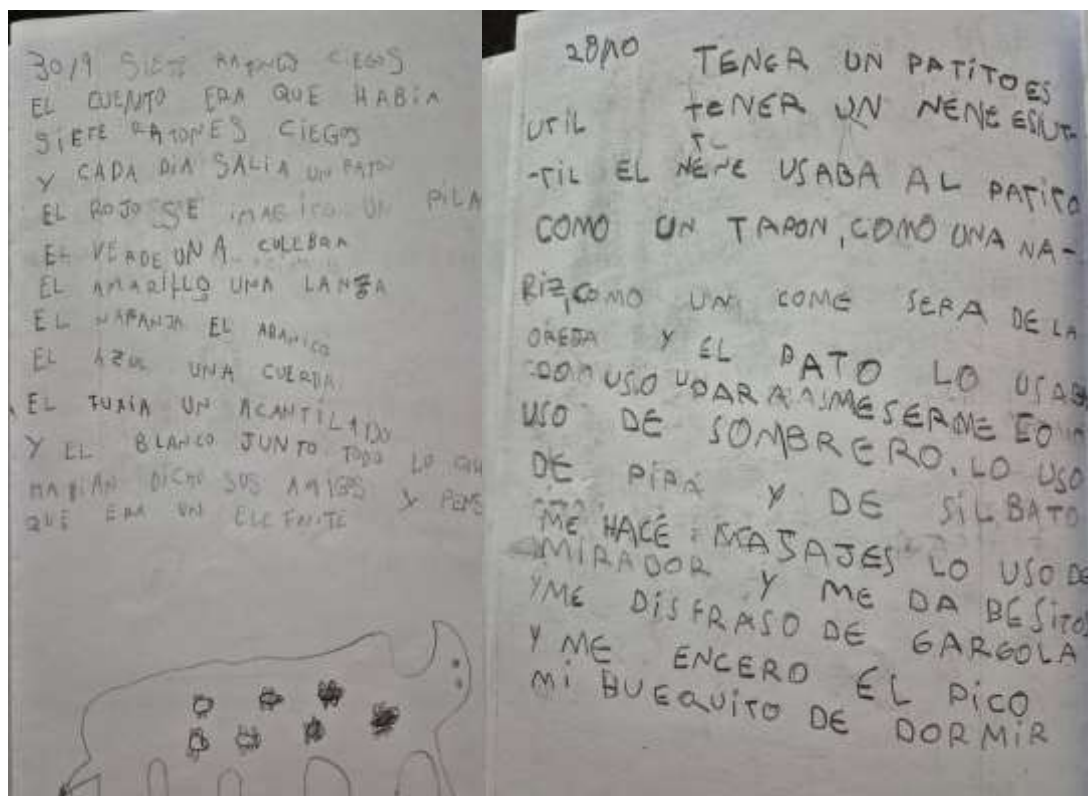 30/9 SIETE RATONES CIEGOS
EL CUENTO ERA QUE HABIA
SIETE RATONES CIEGOS
Y CADA DIA SALIA UN RATON
EL ROJO SE IMAGINO UN PILA
EL VERDE UNA CULEBRA
EL AMARILLO UNA LANZA
EL NARANJA EL ABANICO
EL AZUL UNA CUERDA
EL FUXIA UN ACANTILADO
Y EL BLANCO JUNTO TODO LO QU
HABIAN DICHO SUS AMIGOS Y PENS
QUE ERA UN ELEFNITE
28/10 TENER UN PATITO ES
UTIL TENER UN NENE ES UT
-TIL EL NENE USABA AL PATITO
COMO UN TAPON, COMO UNA NA-
RIZ, COMO UN COME SERA DE LA
OREJA Y EL PATO LO USAB
USO DE SOMBRERO. LO USO
DE PIPA Y DE SILBATO
ME HACE MASAJES LO USO DE
MIRADOR Y ME DA BESITO
Y ME DISFRASO DE GARGOLA
Y ME ENCERO EL PICO
MI BUEQUITO DE DORMIR